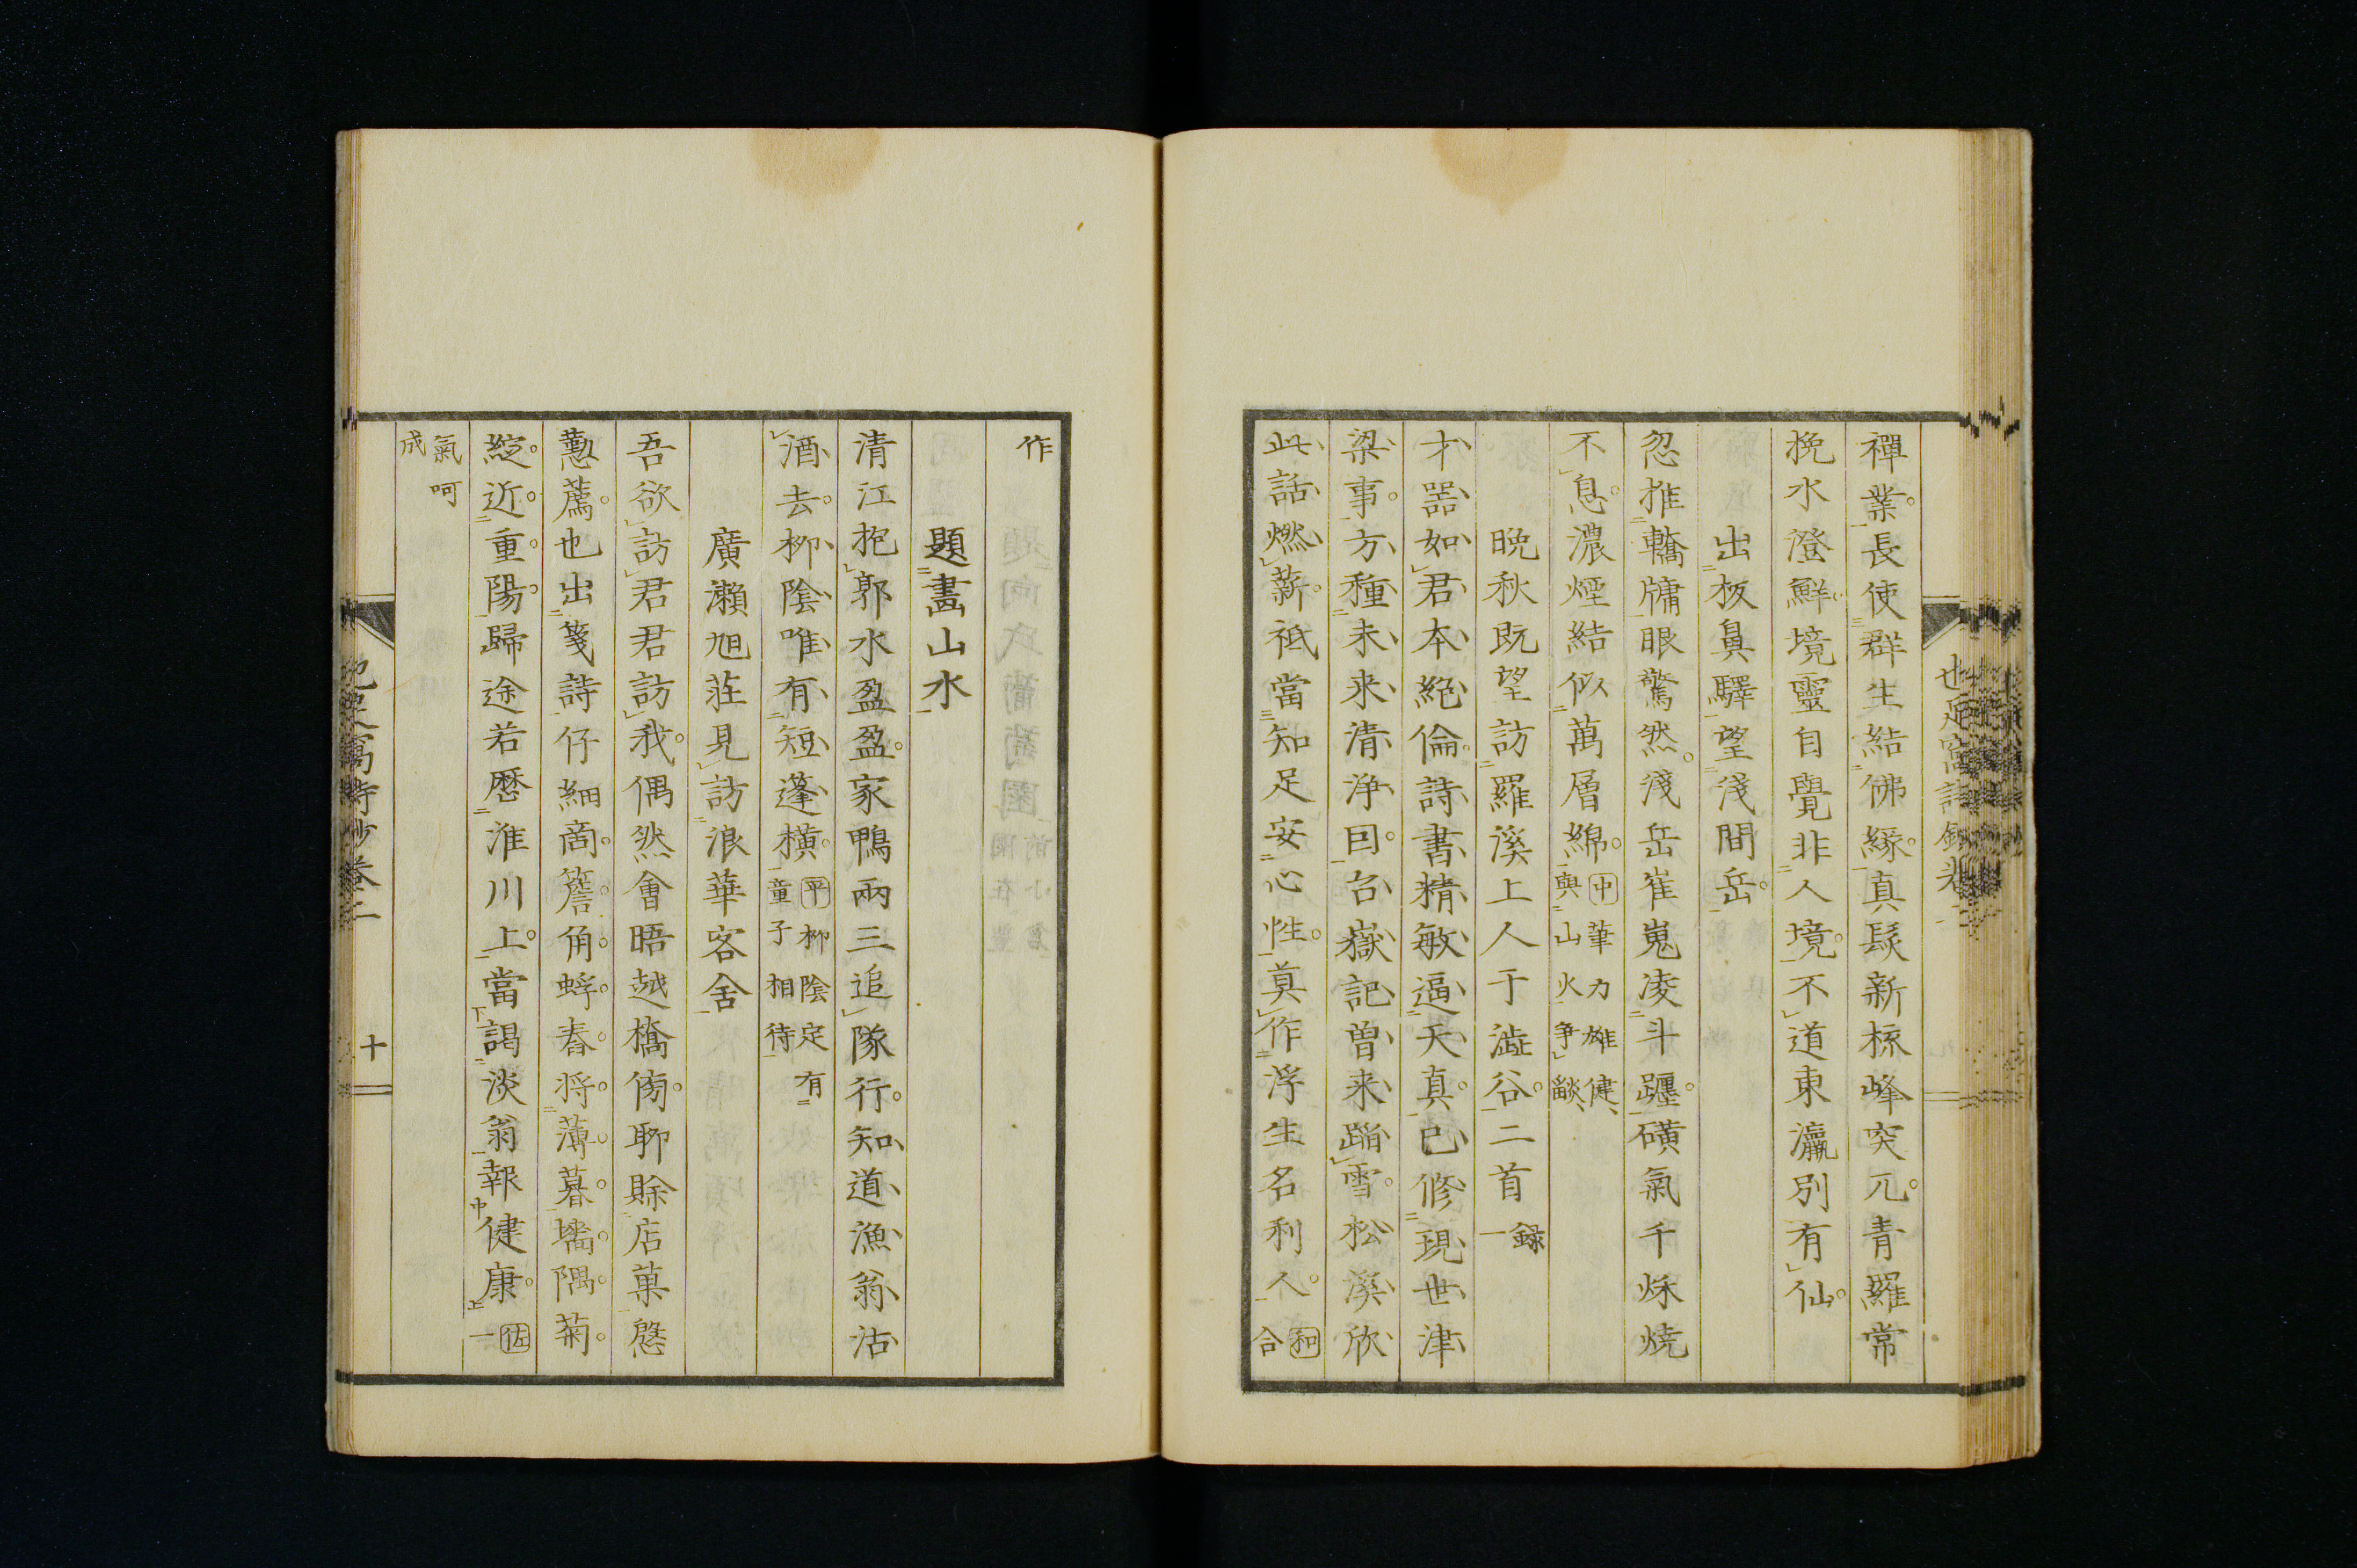 禪業長使群生結佛緣真髮新梳峰突兀青羅常
挽水澄鮮境靈自覺非人境不道東瀛別有仙
出板鼻驛望淺間岳
忽推轎牗眼驚然淺岳崔嵬凌斗躔磺氣千秌燒
不息濃煙結似萬層綿
中華力雄健
與山火爭燄
晚秋既望訪羅溪上人于澁谷二首
錄一
才器如君本絕倫詩書精敏逼天真已修現世津
梁事方種未來清淨因台嶽記曾來蹋雪松溪欣
此話燃薪祗當知足安心性莫作浮生名利人
和
合
作
題畫山水
清江抱郭水盈盈家鴨兩三追隊行知道漁翁沽
酒去柳陰唯有短蓬橫
平柳陰定有
童子相待
廣瀨旭莊見訪浪華客舍
吾欲訪君君訪我偶然會晤越橋傍聊賒店菓慇
懃薦也出箋詩仔細商簷角蜉舂将薄暮墻隅菊
綻近重陽歸途若歷淮川上當謁淡翁報健康
佐
一
氣呵
成
也足窩詩鈔卷二
十